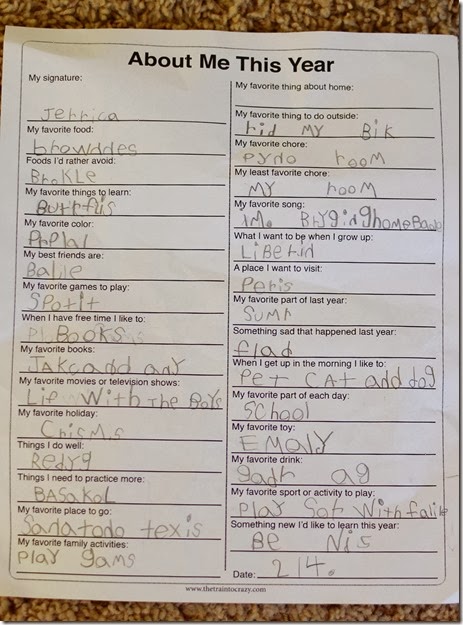 About Me This Year
My signature:
Jerrica
My favorite food:
browddes
Foods I'd rather avoid:
BroKLe
My favorite things to learn:
Buttflis
My favorite color:
PrPlal
My best friends are:
Balie
My favorite games to play:
SPOtIt
When I have free time I like to:
BOOKS
My favorite books:
JAKE and any
My favorite movies or television shows:
Lif With The Boys
My favorite holiday:
ChisMs
Things I do well:
Redyg
Things I need to practice more:
BASakoL
My favorite place to go:
Sanatodo texis
My favorite family activities:
PLAY gams
My favorite thing about home:
My favorite thing to do outside:
rid my Bik
My favorite chore:
pydo room
My least favorite chore:
MY room
My favorite song:
IM. BryginghomeBaby
What I want to be when I grow up:
LiBerin
A place I want to visit:
Peris
My favorite part of last year:
SUMr
Something sad that happened last year:
flad
When I get up in the morning I like to:
Pet CAT and dog
My favorite part of each day:
SChool
My favorite toy:
EMALY
My favorite drink:
gadr ag
My favorite sport or activity to play:
PLAY Sof With
Something new I'd like to learn this year:
Be Nis
Date: 214.
www.thetraintocrazy.com